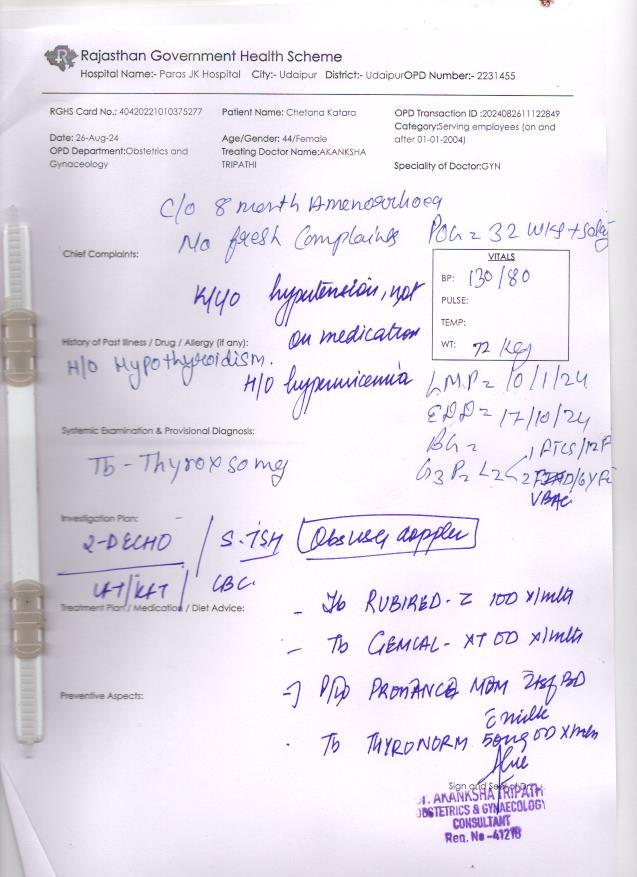 Rajasthan Government Health Scheme
Hospital Name:- Paras JK Hospital City:- Udaipur District:- UdaipurOPD Number:- 2231455
RGHS Card No.: 40420221010375277 Patient Name: Chetana Katara OPD Transaction ID :2024082611122849
Category:Serving employees (on and after 01-01-2004)
Date: 26-Aug-24 Age/Gender: 44/Female
OPD Department:Obstetrics and Gynaceology Treating Doctor Name:AKANKSHA TRIPATHI Speciality of Doctor:GYN
C/o 8 month Amenorrhoea
No fresh Complains POG = 32 wks +
Chief Complaints:
VITALS
BP: 130/80
PULSE:
TEMP:
WT: 72 Kg
K/c/o hypertension, not on medication
History of Past Illness / Drug / Allergy (if any):
H/O Hypothyroidism.
H/O hyperuricemia
LMP = 10/1/24
EDD = 17/10/24
BG =
G3P2L2
1 FTCS/12
2 /6Y
VBAC
Systemic Examination & Provisional Diagnosis:
Tb - Thyrox 50mg
Investigation Plan:
2-DECHO / S.TSH Obs USG doppler
LFT/KFT / CBC
Treatment Plan / Medication / Diet Advice:
- Tb RUBIRED-Z 100 x1mth
- Tb GEMCAL-XT OD x1mth
- P/D PROHANCE MOM 2tsf BD
c milk
Preventive Aspects:
. Tb THYRONORM 50mg OD x1mth
Sign and Seal of Dr.
Dr. AKANKSHA TRIPATHI
OBSTETRICS & GYNAECOLOGY
CONSULTANT
Reg. No -41218